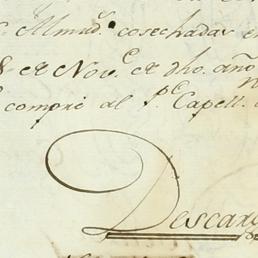 Almud.s cosechadas en
8 de Nov.e de dho. año
compré al P.e Capell.n
Descar